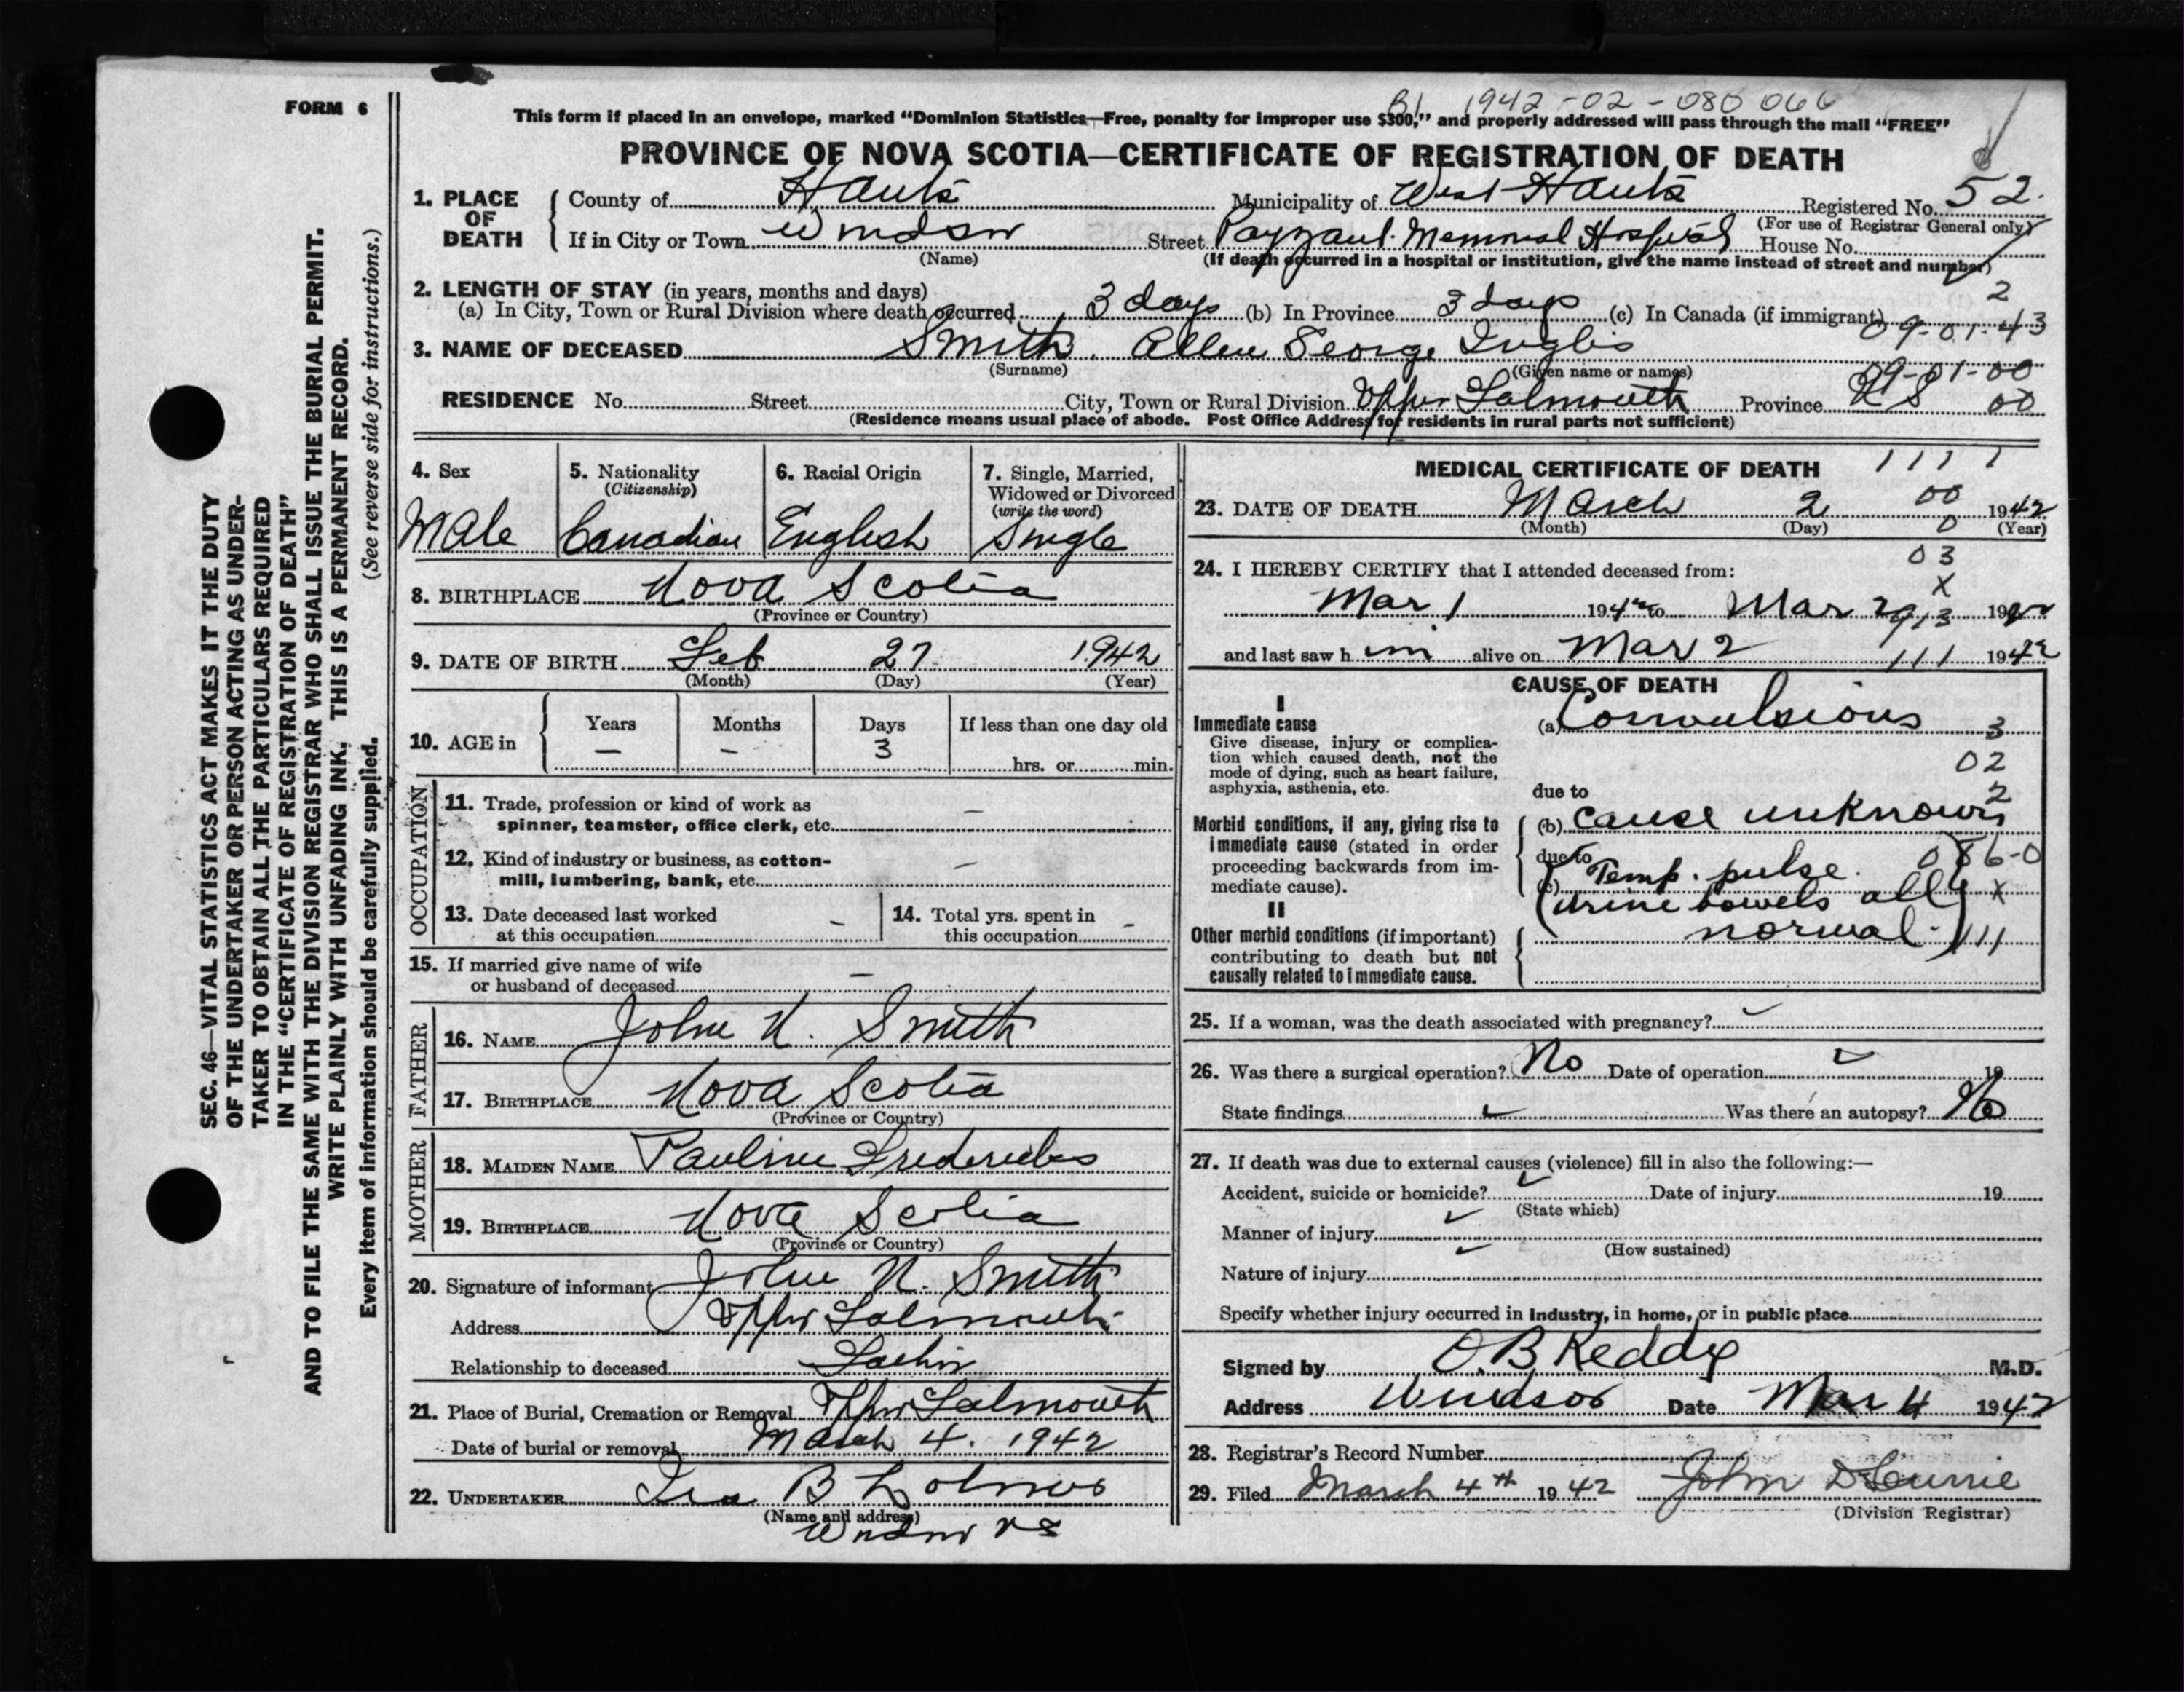 FORM 6
B1 1942-02-080066
This form if placed in an envelope, marked "Dominion Statistics—Free, penalty for improper use $300," and properly addressed will pass through the mail "FREE"
PROVINCE OF NOVA SCOTIA—CERTIFICATE OF REGISTRATION OF DEATH
1. PLACE OF DEATH
County of Hants Municipality of West Hants Registered No. 52.
(For use of Registrar General only)
If in City or Town Windsor Street Payzant Memorial Hospital House No.
(Name) (If death occurred in a hospital or institution, give the name instead of street and number)
2. LENGTH OF STAY (in years, months and days) 2
(a) In City, Town or Rural Division where death occurred 3 days (b) In Province 3 days (c) In Canada (if immigrant)
09-01-43
3. NAME OF DECEASED Smith. Allen George Inglis
(Surname) (Given name or names)
09-01-00
RESIDENCE No. Street City, Town or Rural Division Upper Falmouth Province N S 00
(Residence means usual place of abode. Post Office Address for residents in rural parts not sufficient)
4. Sex
Male
5. Nationality
(Citizenship)
Canadian
6. Racial Origin
English
7. Single, Married,
Widowed or Divorced
(write the word)
Single
8. BIRTHPLACE Nova Scotia
(Province or Country)
9. DATE OF BIRTH Feb 27 1942
(Month) (Day) (Year)
10. AGE in
Years Months Days If less than one day old
— - 3
hrs. or min.
OCCUPATION
11. Trade, profession or kind of work as
spinner, teamster, office clerk, etc. –
12. Kind of industry or business, as cotton-
mill, lumbering, bank, etc. –
13. Date deceased last worked
at this occupation -
14. Total yrs. spent in
this occupation -
15. If married give name of wife
or husband of deceased –
FATHER
16. NAME John N. Smith
17. BIRTHPLACE Nova Scotia
(Province or Country)
MOTHER
18. MAIDEN NAME Pauline Fredericks
19. BIRTHPLACE Nova Scotia
(Province or Country)
20. Signature of informant John N. Smith
Address Upper Falmouth
Relationship to deceased Father
21. Place of Burial, Cremation or Removal Upper Falmouth
Date of burial or removal March 4. 1942
22. UNDERTAKER Ira B
(Name and address)
Windsor N S
MEDICAL CERTIFICATE OF DEATH 1 1 1 1
23. DATE OF DEATH March 2 00 1942
(Month) (Day) 0 (Year)
03
24. I HEREBY CERTIFY that I attended deceased from:
X
Mar 1 1942 to Mar 2 1942
and last saw him alive on Mar 2 111 1942
CAUSE OF DEATH
I
Immediate cause
Give disease, injury or complica-
tion which caused death, not the
mode of dying, such as heart failure,
asphyxia, asthenia, etc.
(a) Convulsions 3
02
due to 2
Morbid conditions, if any, giving rise to
immediate cause (stated in order
proceeding backwards from im-
mediate cause).
(b) cause unknown
due to 086-0
(c) (Temp. pulse.
(urine bowels all) X
normal.) 111
II
Other morbid conditions (if important)
contributing to death but not
causally related to immediate cause.
25. If a woman, was the death associated with pregnancy?
26. Was there a surgical operation? No Date of operation 19
State findings Was there an autopsy? No
27. If death was due to external causes (violence) fill in also the following:—
Accident, suicide or homicide? Date of injury 19
(State which)
Manner of injury
(How sustained)
Nature of injury
Specify whether injury occurred in industry, in home, or in public place
Signed by O. B. Keddy M.D.
Address Windsor Date Mar 4 1942
28. Registrar's Record Number
29. Filed March 4th 1942 John D Currie
(Division Registrar)
SEC. 46—VITAL STATISTICS ACT MAKES IT THE DUTY
OF THE UNDERTAKER OR PERSON ACTING AS UNDER-
TAKER TO OBTAIN ALL THE PARTICULARS REQUIRED
IN THE "CERTIFICATE OF REGISTRATION OF DEATH"
AND TO FILE THE SAME WITH THE DIVISION REGISTRAR WHO SHALL ISSUE THE BURIAL PERMIT.
WRITE PLAINLY WITH UNFADING INK. THIS IS A PERMANENT RECORD.
Every item of information should be carefully supplied. (See reverse side for instructions.)